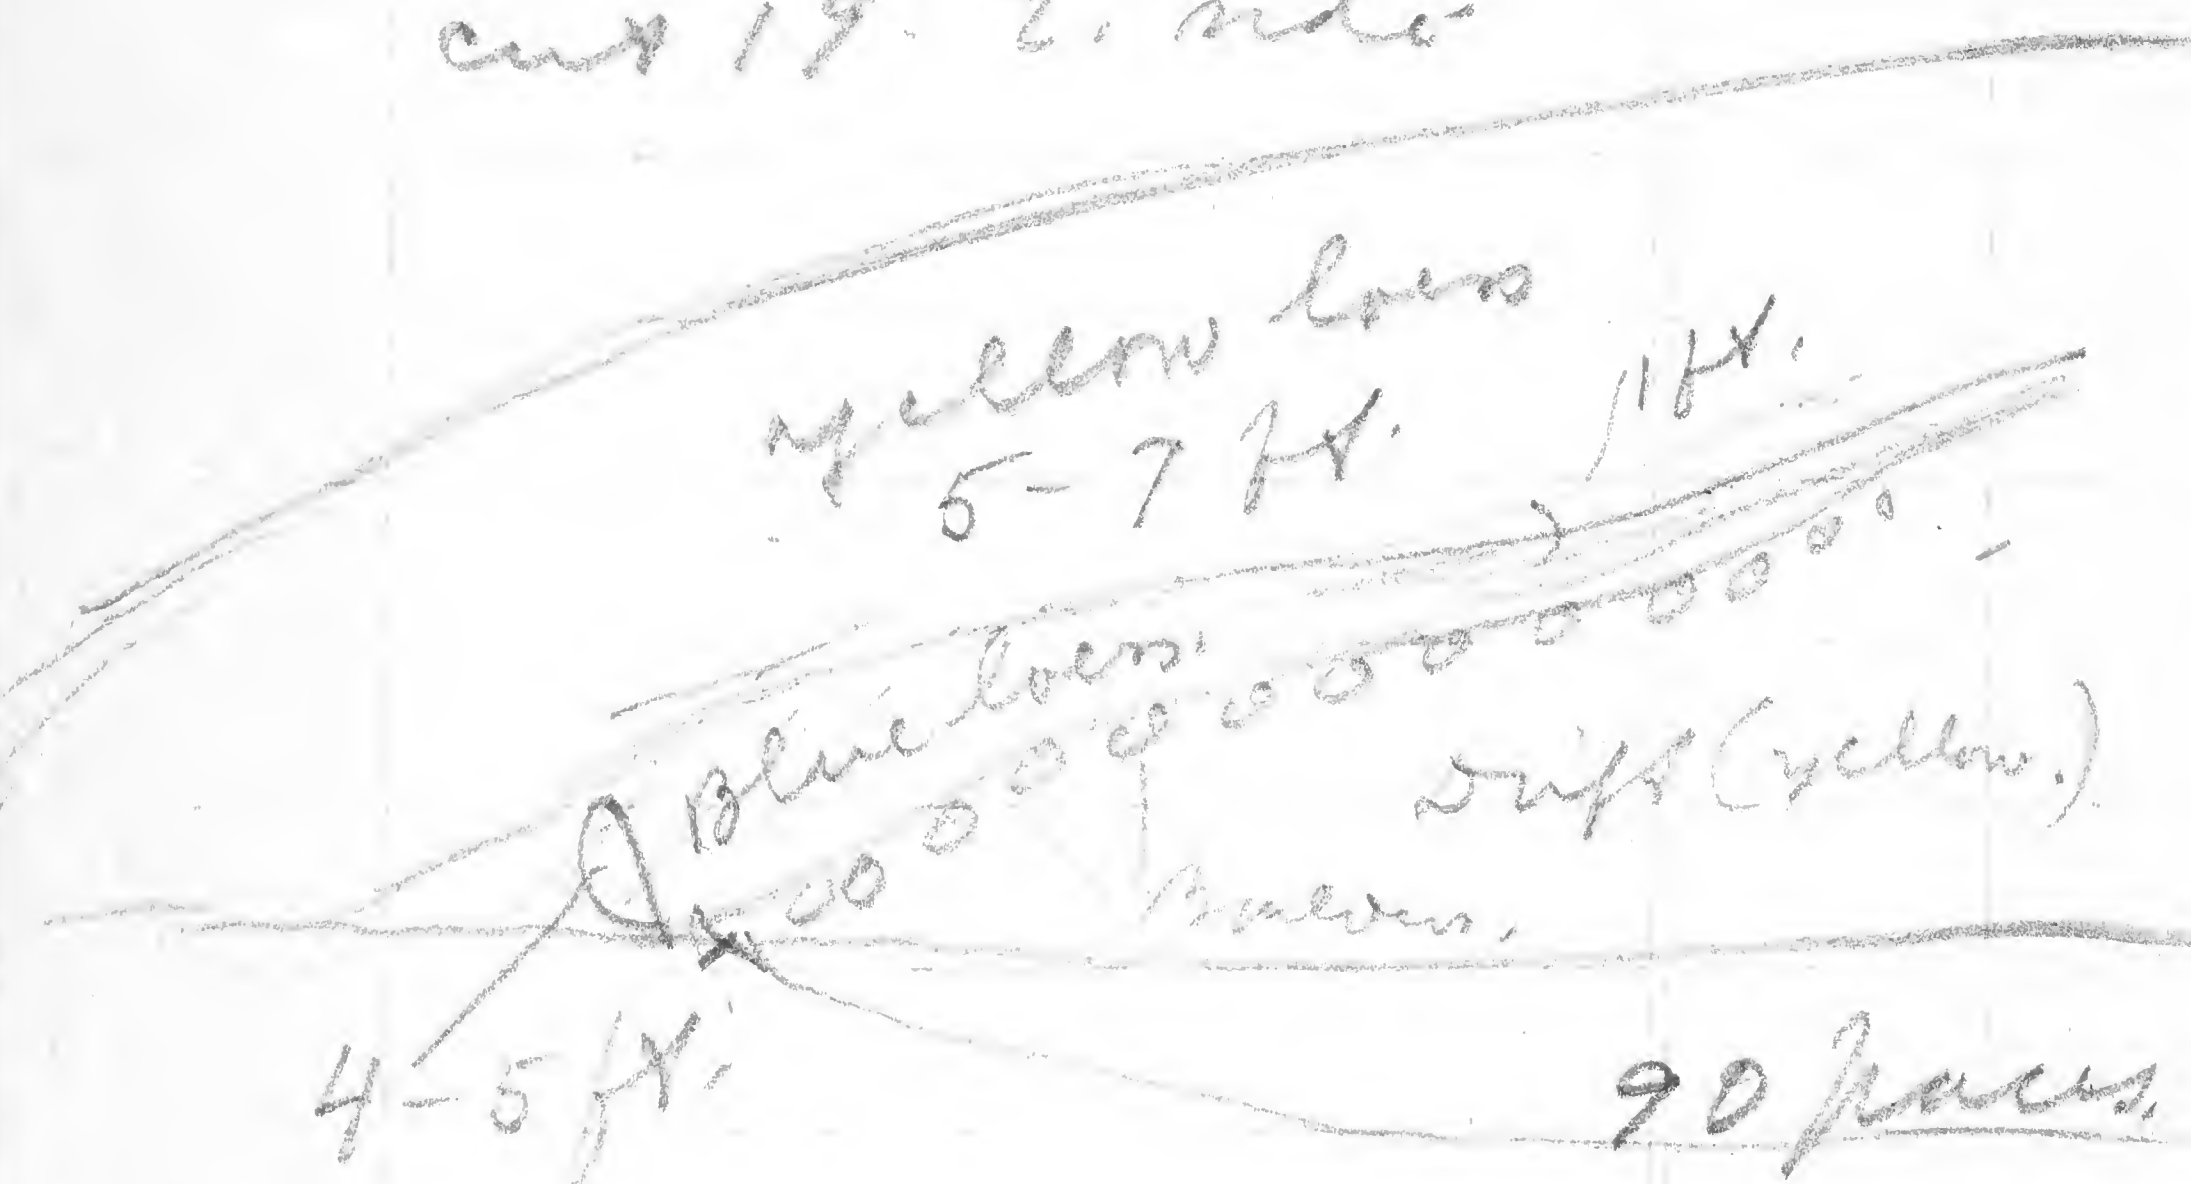 cut 19. E. side
yellow loess
5-7 ft.
11 ft.
Blue loess.
drift (yellow.)
4-5 ft.
90 paces